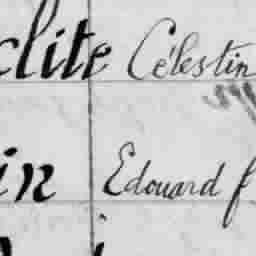 clite Célestin
in Edouard f